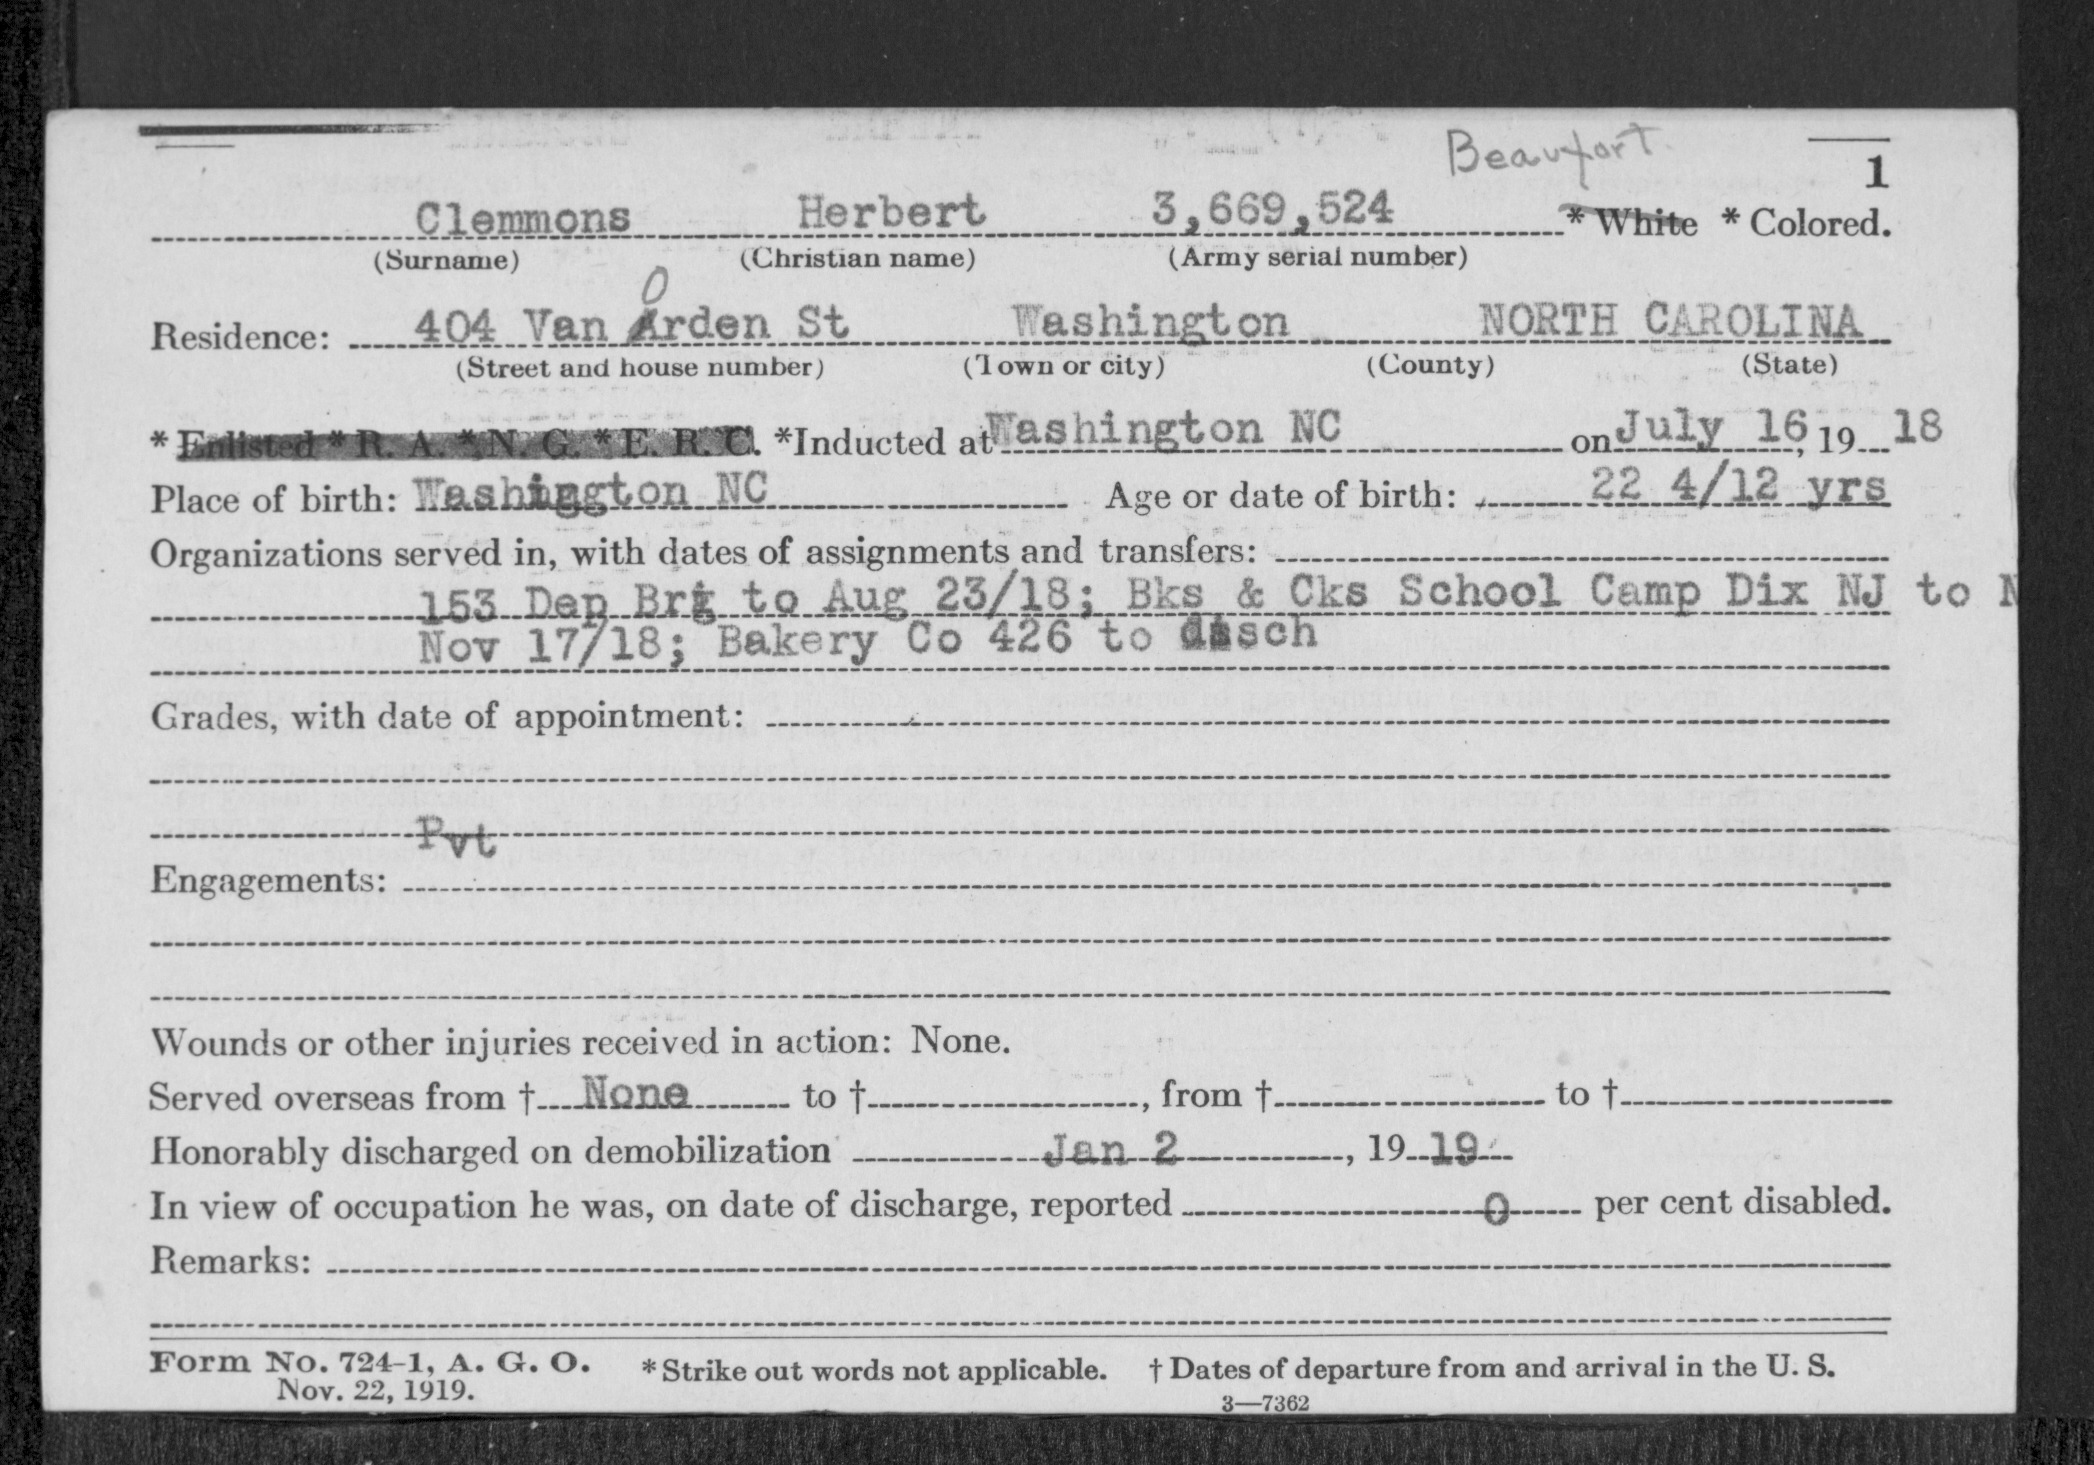 Beaufort
1
Clemmons Herbert 3,669,524 * White * Colored.
(Surname) (Christian name) (Army serial number)
O
Residence: 404 Van Arden St Washington NORTH CAROLINA
(Street and house number) (Town or city) (County) (State)
* Enlisted * R. A. * N. G. * E. R. C. *Inducted at Washington NC on July 16, 19 18
Place of birth: Washington NC Age or date of birth: 22 4/12 yrs
Organizations served in, with dates of assignments and transfers:
153 Dep Brg to Aug 23/18; Bks & Cks School Camp Dix NJ to N
Nov 17/18; Bakery Co 426 to disch
Grades, with date of appointment:
Pvt
Engagements:
Wounds or other injuries received in action: None.
Served overseas from † None to †, from † to †
Honorably discharged on demobilization Jan 2, 19 19
In view of occupation he was, on date of discharge, reported 0 per cent disabled.
Remarks:
Form No. 724-1, A. G. O. * Strike out words not applicable. † Dates of departure from and arrival in the U. S.
Nov. 22, 1919. 3—7362